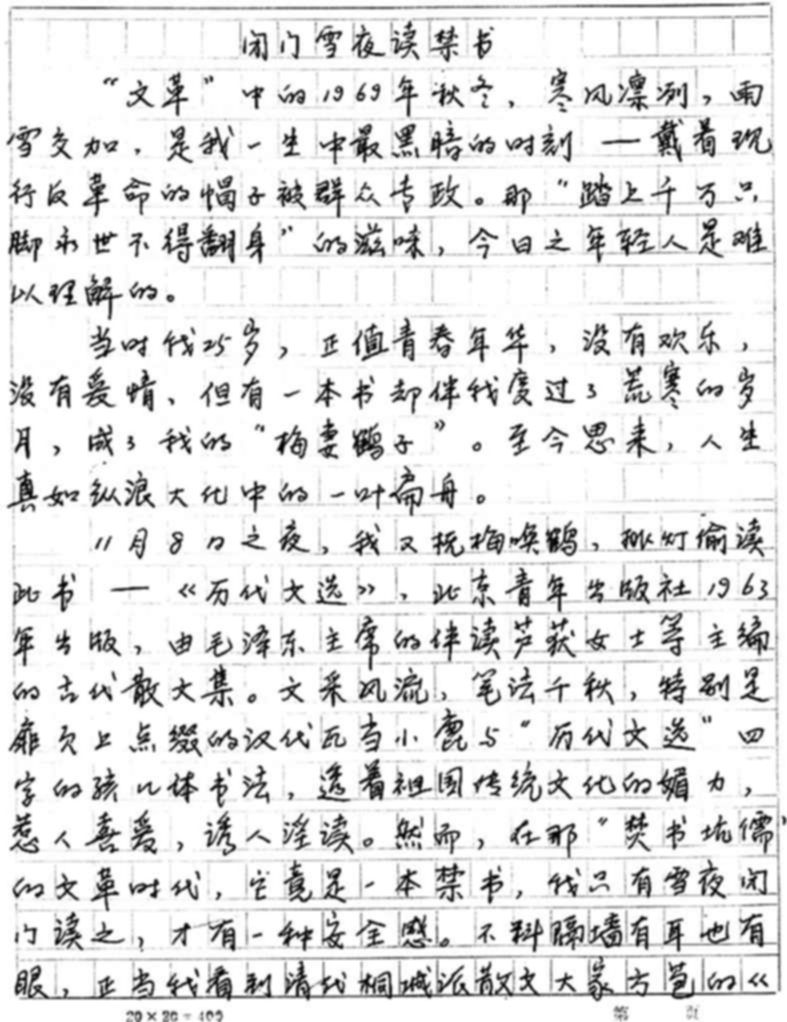 闭门雪夜读禁书
“文革”中的1969年秋冬，寒风凛冽，雨
雪交加，是我一生中最黑暗的时刻——戴着现
行反革命的帽子被群众专政。那“踏上千万只
脚永世不得翻身”的滋味，今日之年轻人是难
以理解的。
当时我25岁，正值青春年华，没有欢乐，
没有爱情，但有一本书却伴我度过了荒寒的岁
月，成了我的“梅妻鹤子”。至今思来，人生
真如纵浪大化中的一叶扁舟。
11月8日之夜，我又抚梅唤鹤，挑灯偷读
此书——《历代文选》，北京青年出版社1963
年出版，由毛泽东主席的伴读芦荻女士等主编
的古代散文集。文采风流，笔法千秋，特别是
扉页上点缀的汉代瓦当小鹿与“历代文选”四
字的孩儿体书法，透着祖国传统文化的媚力，
惹人喜爱，诱人淫读。然而，在那“焚书坑儒”
的文革时代，它竟是一本禁书，我只有雪夜闭
门读之，才有一种安全感。不料隔墙有耳也有
眼，正当我看到清代桐城派散文大家方苞的《
20×20=400
第 页